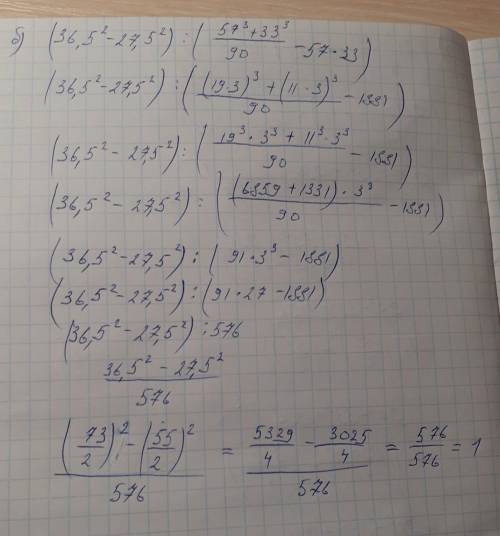 б) (36,5² - 27,5²) : ( (57³ + 33³)/90 - 57 · 33 )
(36,5² - 27,5²) : ( ((19·3)³ + (11·3)³)/90 - 1881 )
(36,5² - 27,5²) : ( (19³ · 3³ + 11³ · 3³)/90 - 1881 )
(36,5² - 27,5²) : ( ((6859 + 1331) · 3³)/90 - 1881 )
(36,5² - 27,5²) : ( 91 · 3³ - 1881 )
(36,5² - 27,5²) : ( 91 · 27 - 1881 )
(36,5² - 27,5²) : 576
(36,5² - 27,5²)/576
((73/2)² - (55/2)²)/576 = (5329/4 - 3025/4)/576 = 576/576 = 1